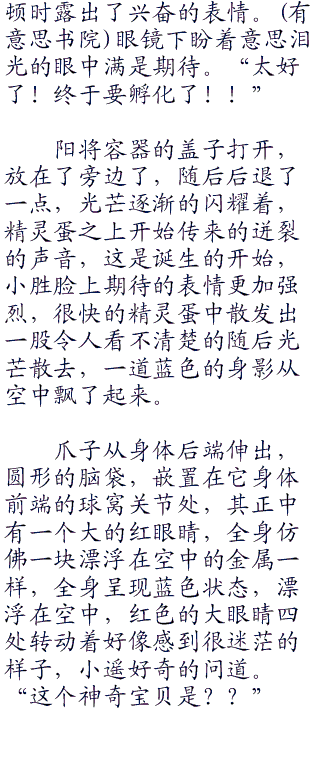 顿时露出了兴奋的表情。(有
意思书院)眼镜下盼着意思泪
光的眼中满是期待。“太好
了！终于要孵化了！！”
阳将容器的盖子打开，
放在了旁边了，随后后退了
一点，光芒逐渐的闪耀着，
精灵蛋之上开始传来的迸裂
的声音，这是诞生的开始，
小胜脸上期待的表情更加强
烈，很快的精灵蛋中散发出
一股令人看不清楚的随后光
芒散去，一道蓝色的身影从
空中飘了起来。
爪子从身体后端伸出，
圆形的脑袋，嵌置在它身体
前端的球窝关节处，其正中
有一个大的红眼睛，全身仿
佛一块漂浮在空中的金属一
样，全身呈现蓝色状态，漂
浮在空中，红色的大眼睛四
处转动着好像感到很迷茫的
样子，小遥好奇的问道。
“这个神奇宝贝是？？”